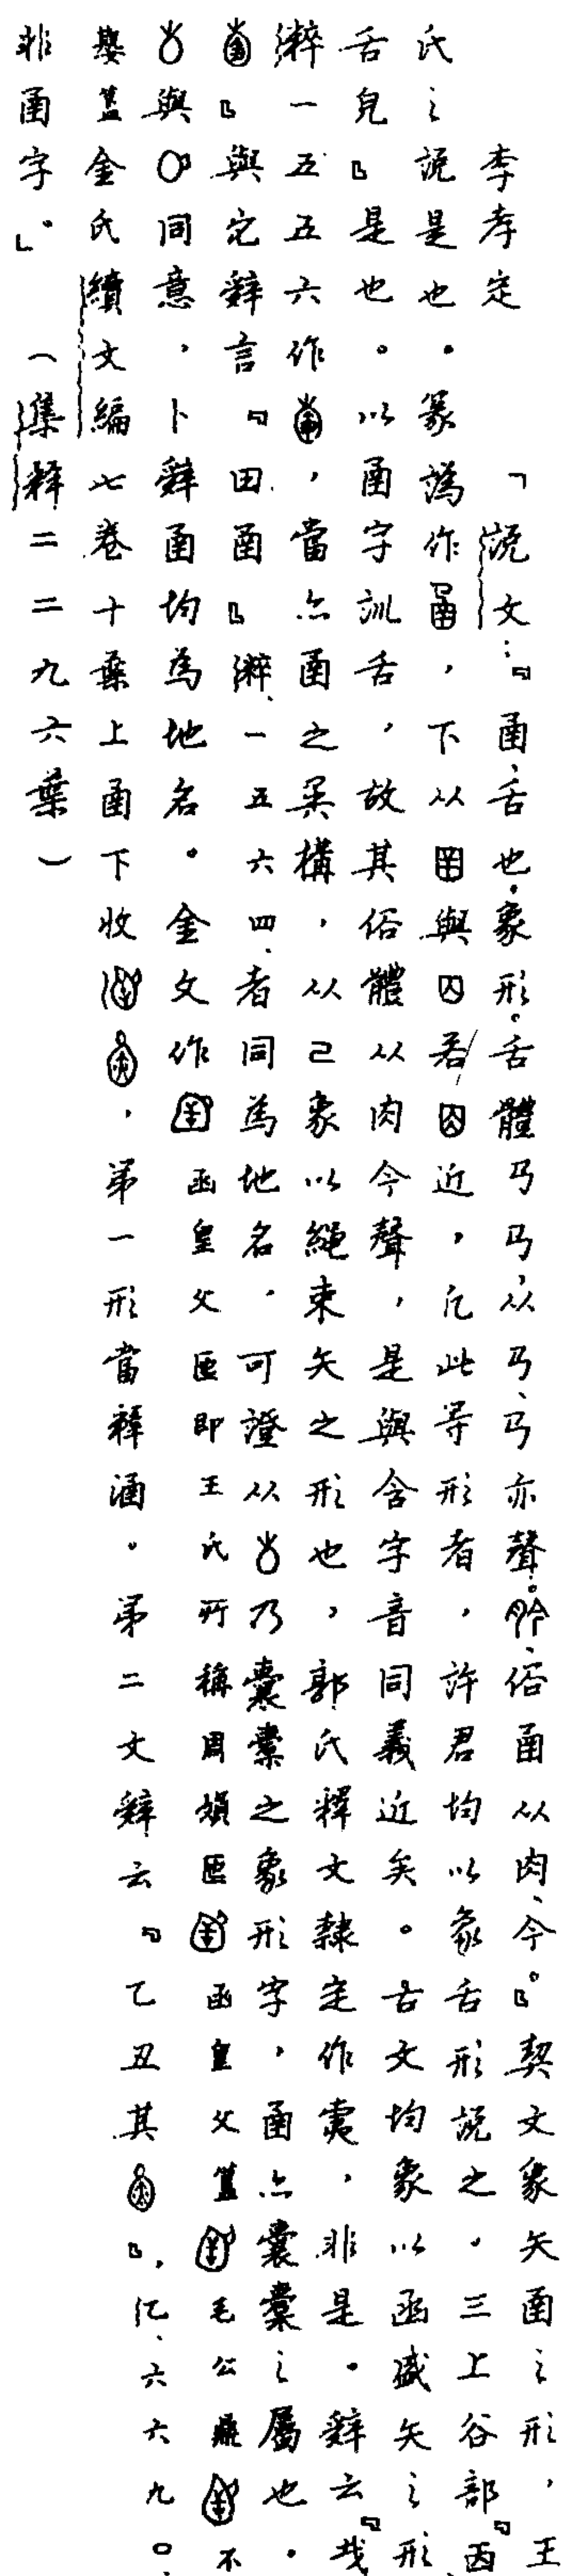 李孝定 「說文：『圅、舌也。象形。舌體马马、从马、马亦聲。肣、俗圅从肉、今。』契文象矢圅之形，王
氏之說是也。篆譌作，下从與若近，凡此等形者，許君均以象舌形說之。三上谷部『㐁
舌皃』是也。以圅字訓舌，故其俗體从肉今聲，是與含字音同義近矣。古文均象以函盛矢之形
粹一五五六作，當亦圅之異構，从己象以繩束矢之形也，郭氏釋文隸定作，非是。辭云『㦰
』與它辭言『田圅』粹、一五六四、者同為地名，可證从乃囊橐之象形字，圅亦囊橐之屬也。
與同意，卜辭圅均為地名。金文作函皇父匜即王氏所稱周㜏匜函皇父簋毛公鼎不
簋金氏續文編七卷十葉上圅下收，第一形當釋涵。第二文辭云『乙丑其』，六六九。
非圅字』。（集釋二二九六葉）